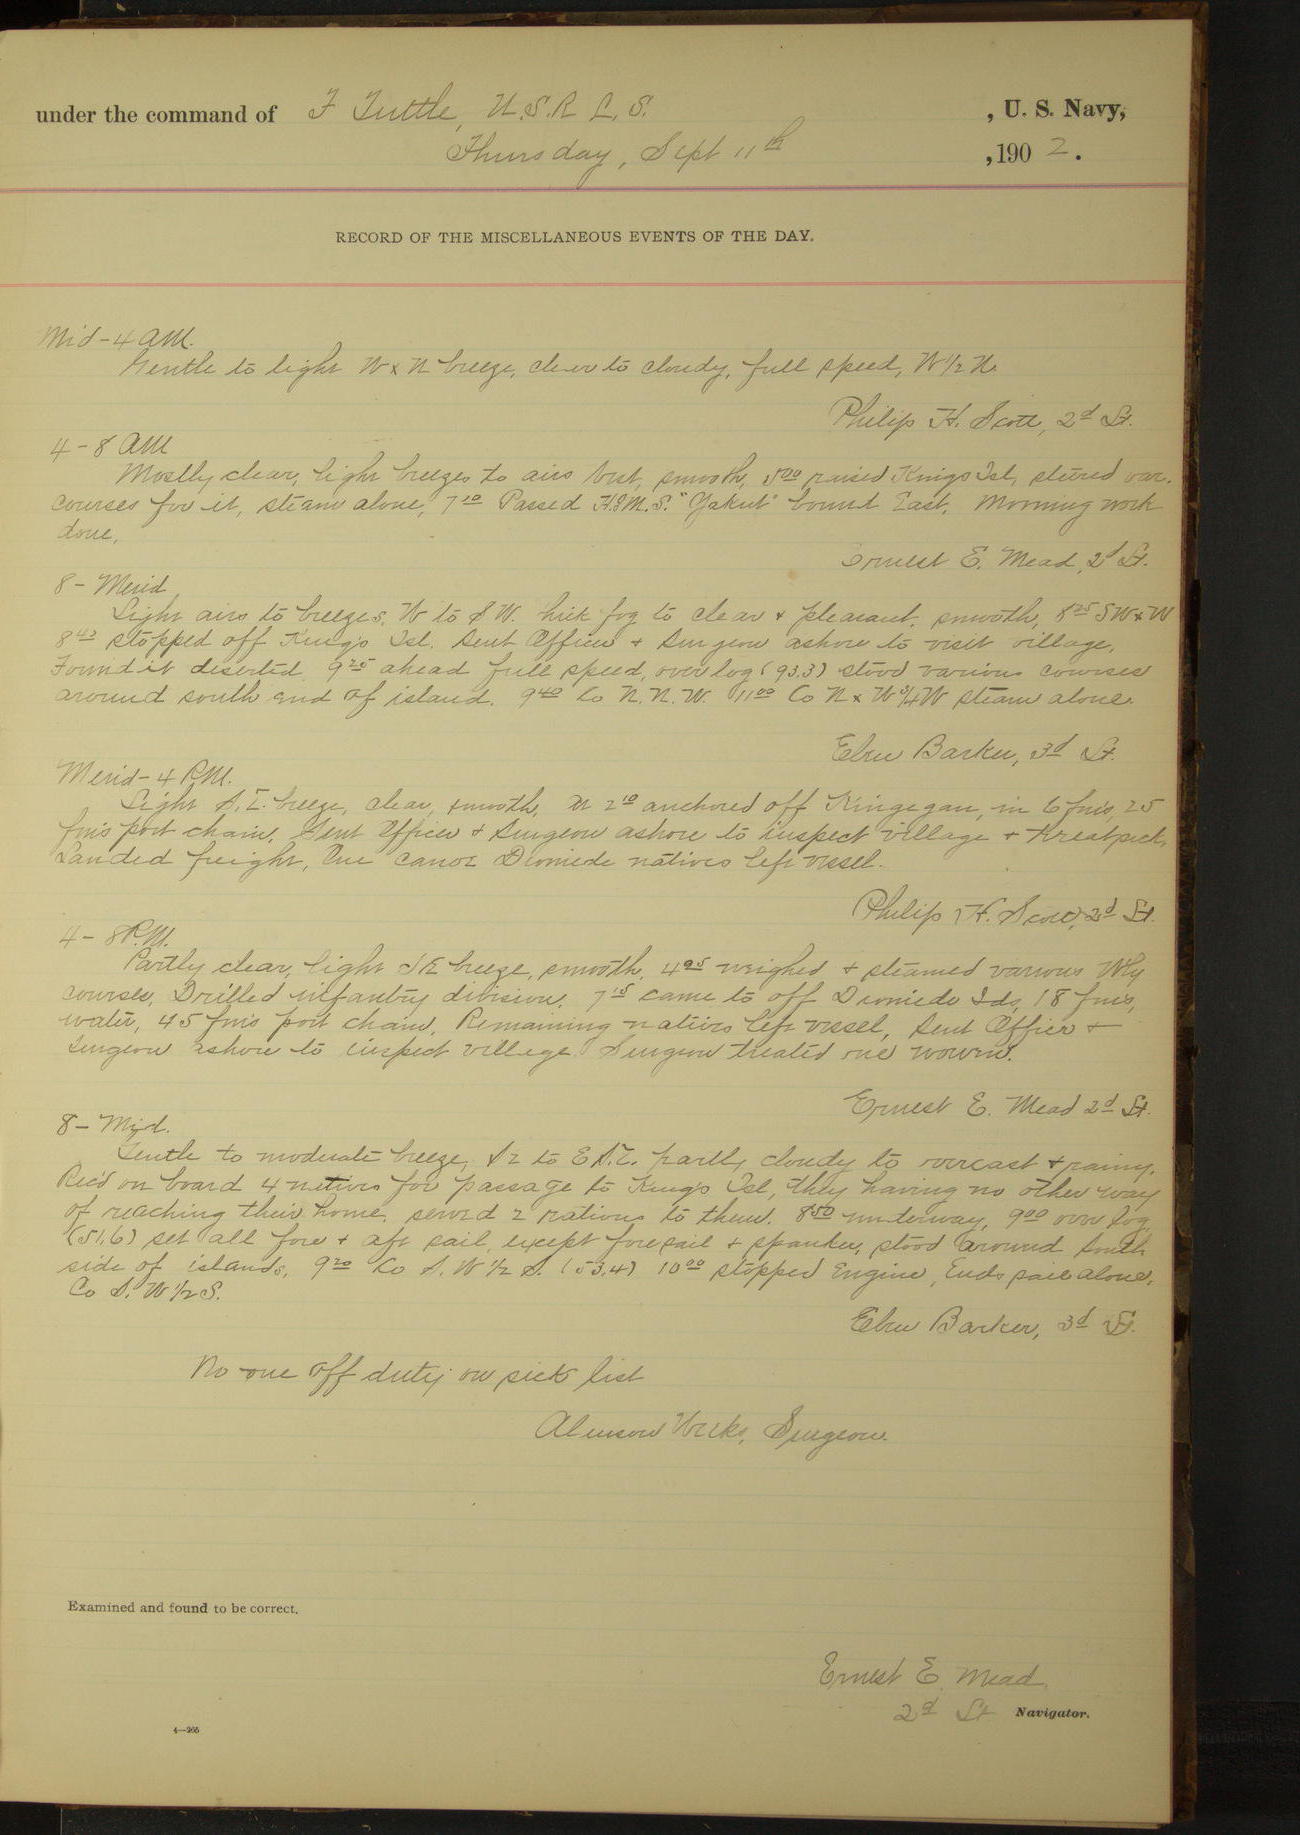 under the command of F Tuttle, U.S.R C.S. , U. S. Navy,
Thursday, Sept 11th , 190 2.
RECORD OF THE MISCELLANEOUS EVENTS OF THE DAY.
Mid-4 AM.
Gentle to light W x N breeze, clear to cloudy, full speed, W 1/2 N.
Philip H. Scott, 2d Lt.
4-8 AM
Mostly clear, light breezes to airs smooth, 500 raised Kings Isl, steered var.
courses for it, steam alone, 7 10 Passed "Yakut" bound East. Morning work
done.
Ernest E. Mead, 2d Lt.
8- Merid
Light airs to breezes, W to SW. fog to clear & pleasant, smooth, 8 25 SW x W
8 43 stopped off King's Isl. Sent Officer & Surgeon ashore to visit village,
Found it deserted, 9 25 ahead full speed, over log (93.3) stood various courses
around south end of island. 9 40 Co N. N. W. 11 00 Co N x W 3/4 W steam alone.
Eben Barker, 3d Lt.
Merid-4 P.M.
Light S.E. breeze, clear, smooth, At 2 10 anchored off Kingegan, in 6 fms, 25
fms port chain, Sent Officer & Surgeon ashore to inspect village & treat sick,
Landed freight, One canoe Diomede natives left vessel.
Philip H. Scott, 2d Lt.
4- 8 P.M.
Partly clear, light SE breeze, smooth, 4 05 weighed & steamed various Wly
courses, Drilled infantry division. 7 15 came to off Diomede Ids, 18 fms,
water, 45 fms port chain, Remaining natives left vessel, Sent Officer &
Surgeon ashore to inspect village Surgeon treated one women.
Ernest E. Mead 2d Lt.
8- Mid.
Gentle to moderate breeze, SE to E S.E. partly cloudy to overcast & rainy.
Rec'd on board 4 natives for passage to King's Isl, they having no other way
of reaching their home, served 2 rations to them. 8 50 underway, 9 00 over log
(51.6) set all fore & aft sail, except foresail & spanker, stood around South
side of islands, 9 20 Co S. W 1/2 S. (53.4) 10 00 stopped Engine, Ends sail alone,
Co S. W 1/2 S.
Eben Barker, 3d Lt.
No one off duty on sick list
Alanson Weeks, Surgeon.
Examined and found to be correct.
Ernest E. Mead
2d Lt Navigator.
4—265